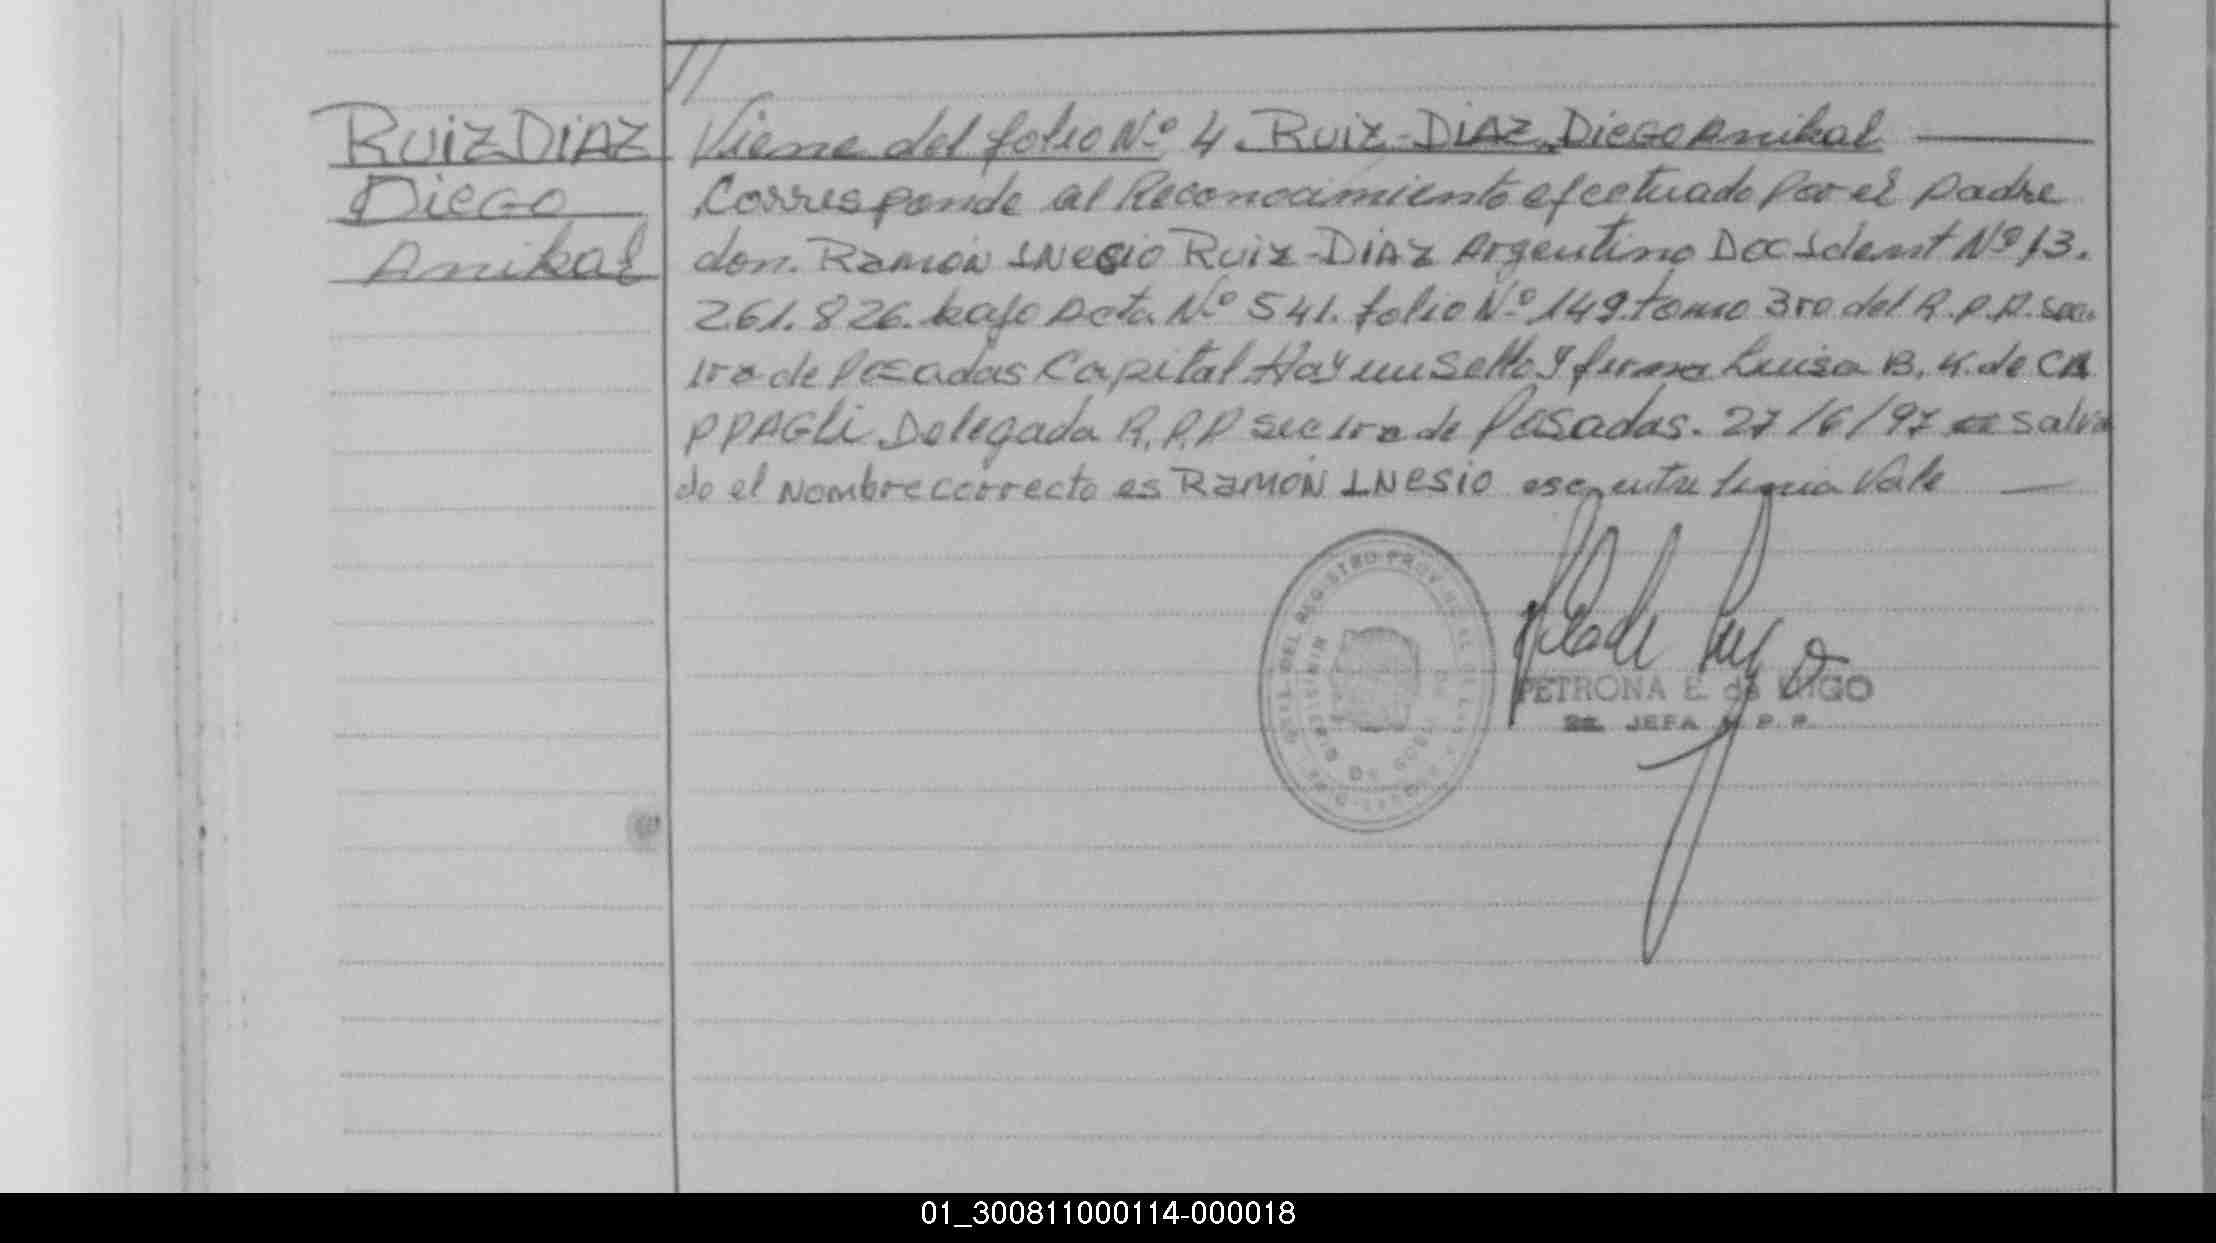 RUIZ DIAZ
DIEGO
Anibal
//
Viene del folio Nº 4. RUIZ-DIAZ DIEGO Anibal
Corresponde al Reconocimiento efectuado Por el padre
don. RAMON INESIO RUIZ-DIAZ Argentino Doc Ident Nº 13.
261.826. bajo Acta Nº 541. folio Nº 149. tomo 3ro del R.P.P. sec.
1ra de Posadas Capital Hay un Sello y firma Luisa B. K. de CA
PPAGLI Delegada R.P.P sec 1ra de Posadas. 27/6/97 salva
do el Nombre correcto es RAMON INESIO ese, entre linea Vale
REGISTRO PROVINCIAL DE LAS PERSONAS
PETRONA E. de LUGO
JEFA R. P. P.
01_300811000114-000018